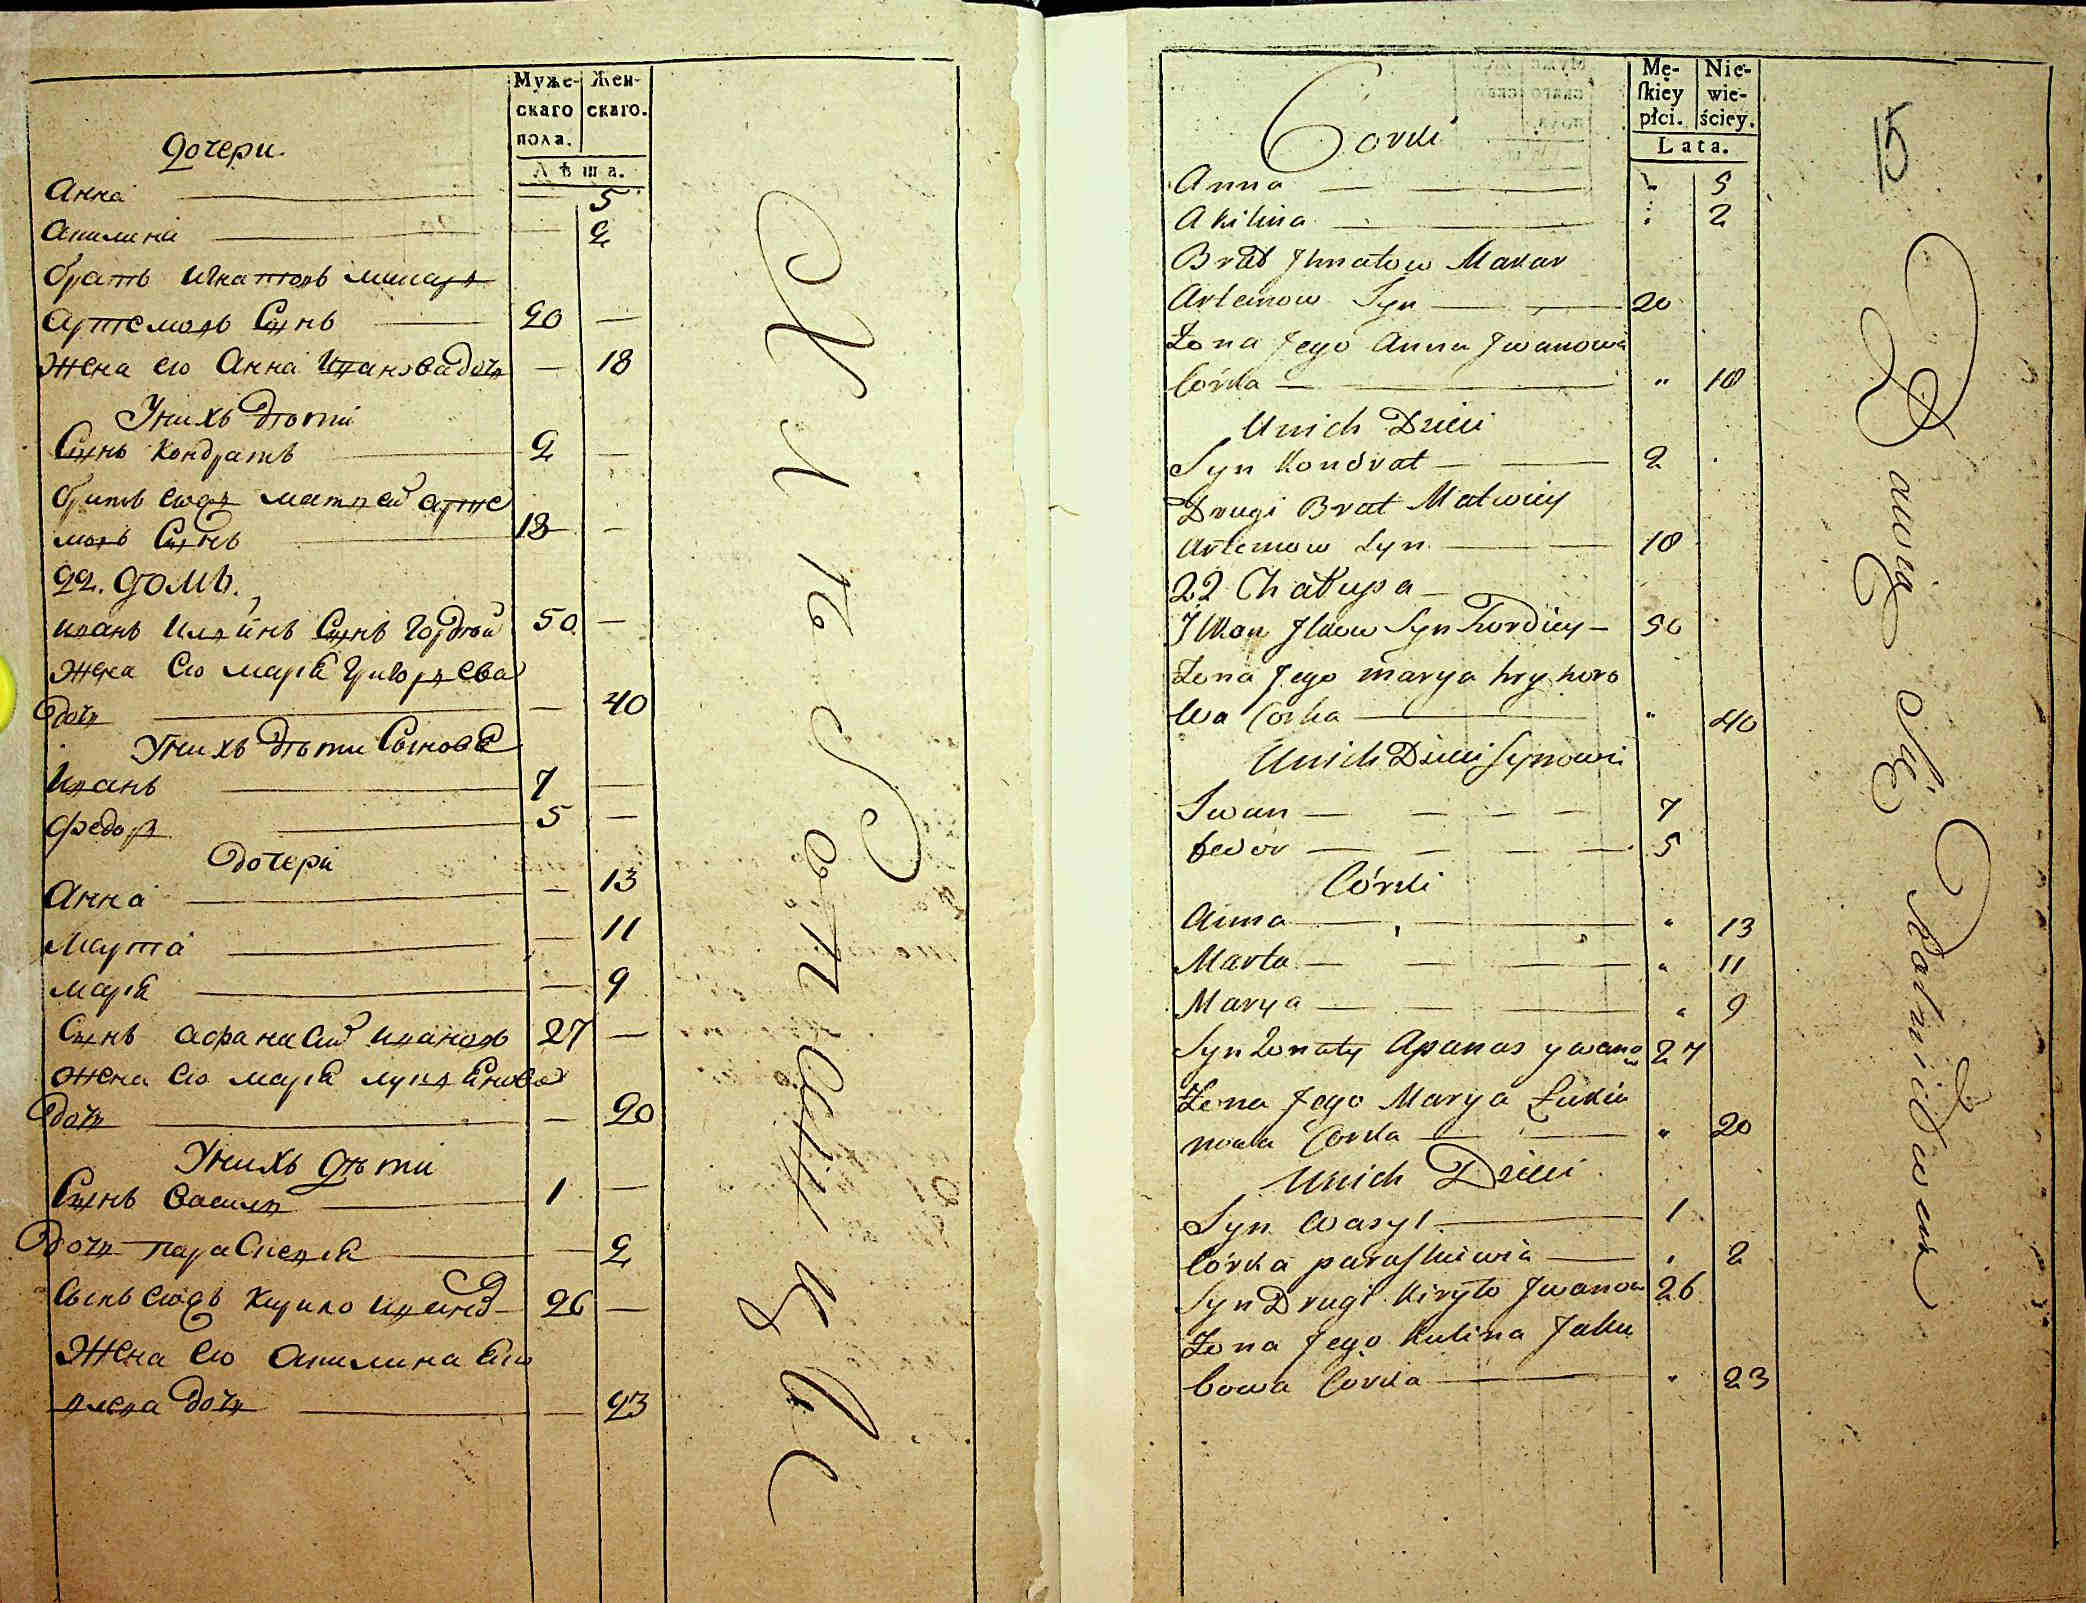 Муже-
скаго
пола.
Жен-
скаго.
Лѣта.
Дочери
Анна — 5
Акилина — 2
братъ Игнатовъ Макаръ
Артемовъ Сынъ — 20 —
Жена его Анна Иванова дочь — 18
У нихъ дѣти
Сынъ Кондратъ — 2 —
братъ Матвей Арте
мовъ Сынъ — 18 —
22. Домъ.
Иванъ Ильинъ Сынъ Гордѣй 50 —
Жена его Марія Григорьева
дочь — 40
У нихъ дѣти Сыновья
Иванъ — 7 —
Федоръ — 5 —
Дочери
Анна — 13
Марта — 11
Марія — 9
Сынъ Афанасій Ивановъ 27 —
Жена его Марія Лукьянова
дочь — 20
У нихъ дѣти
Сынъ Василь — 1 —
Дочь Параскевія — 2
Сынъ Кирило 26 —
Жена его Акилина
дочь — 23
Mę-
skiey
płci.
Nie-
wie-
ściey.
Lata.
15
Corki
Anna — " 5
Akilina — 2
Brat Ihnatow Makar
Artemow Syn — 20
Żona Jego Anna Jwanowa
Córka — " 18
Unich Dzieci
Syn Kondrat — 2
Drugi Brat Matwiey
Artemow Syn — 18
22 Chałupa
Iwan Ilkow Syn Hordiey — 50
Żona Jego Marya Hryhoro
wa Corka — " 40
Unich Dzieci Synowie
Jwan — 7
Fedor — 5
Córki
Anna — " 13
Marta — " 11
Marya — " 9
Syn Żonaty Apanas ywano 27
w
Żona Jego Marya Łukia
nowa Corka — " 20
Unich Dzieci
Syn Wasyl — 1
Córka paraskiewia — 2
Syn Drugi Kiryło Jwanow 26
Żona Jego Kulina Jaku
bowa Córka — " 23